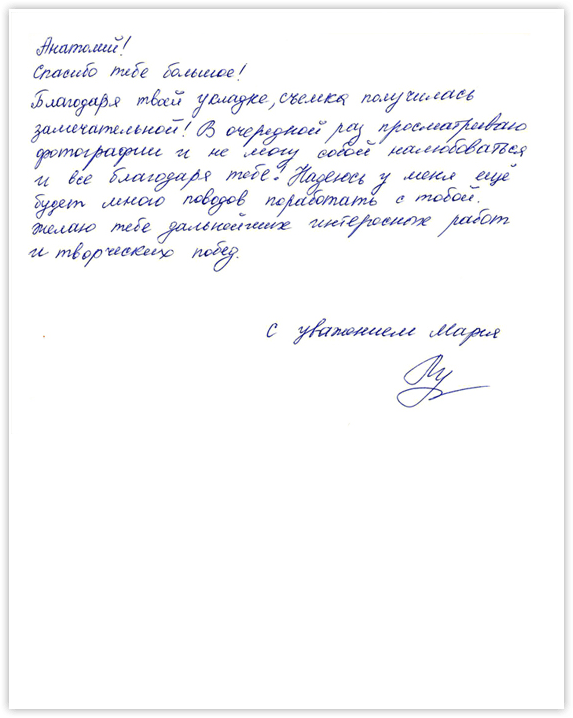 Анатолий!
Спасибо тебе большое!
Благодаря твоей укладке, съемка получилась
замечательной! В очередной раз просматриваю
фотографии и не могу собой налюбоваться
и все благодаря тебе! Надеюсь у меня ещё
будет много поводов поработать с тобой.
Желаю тебе дальнейших интересных работ
и творческих побед.
С уважением Мария